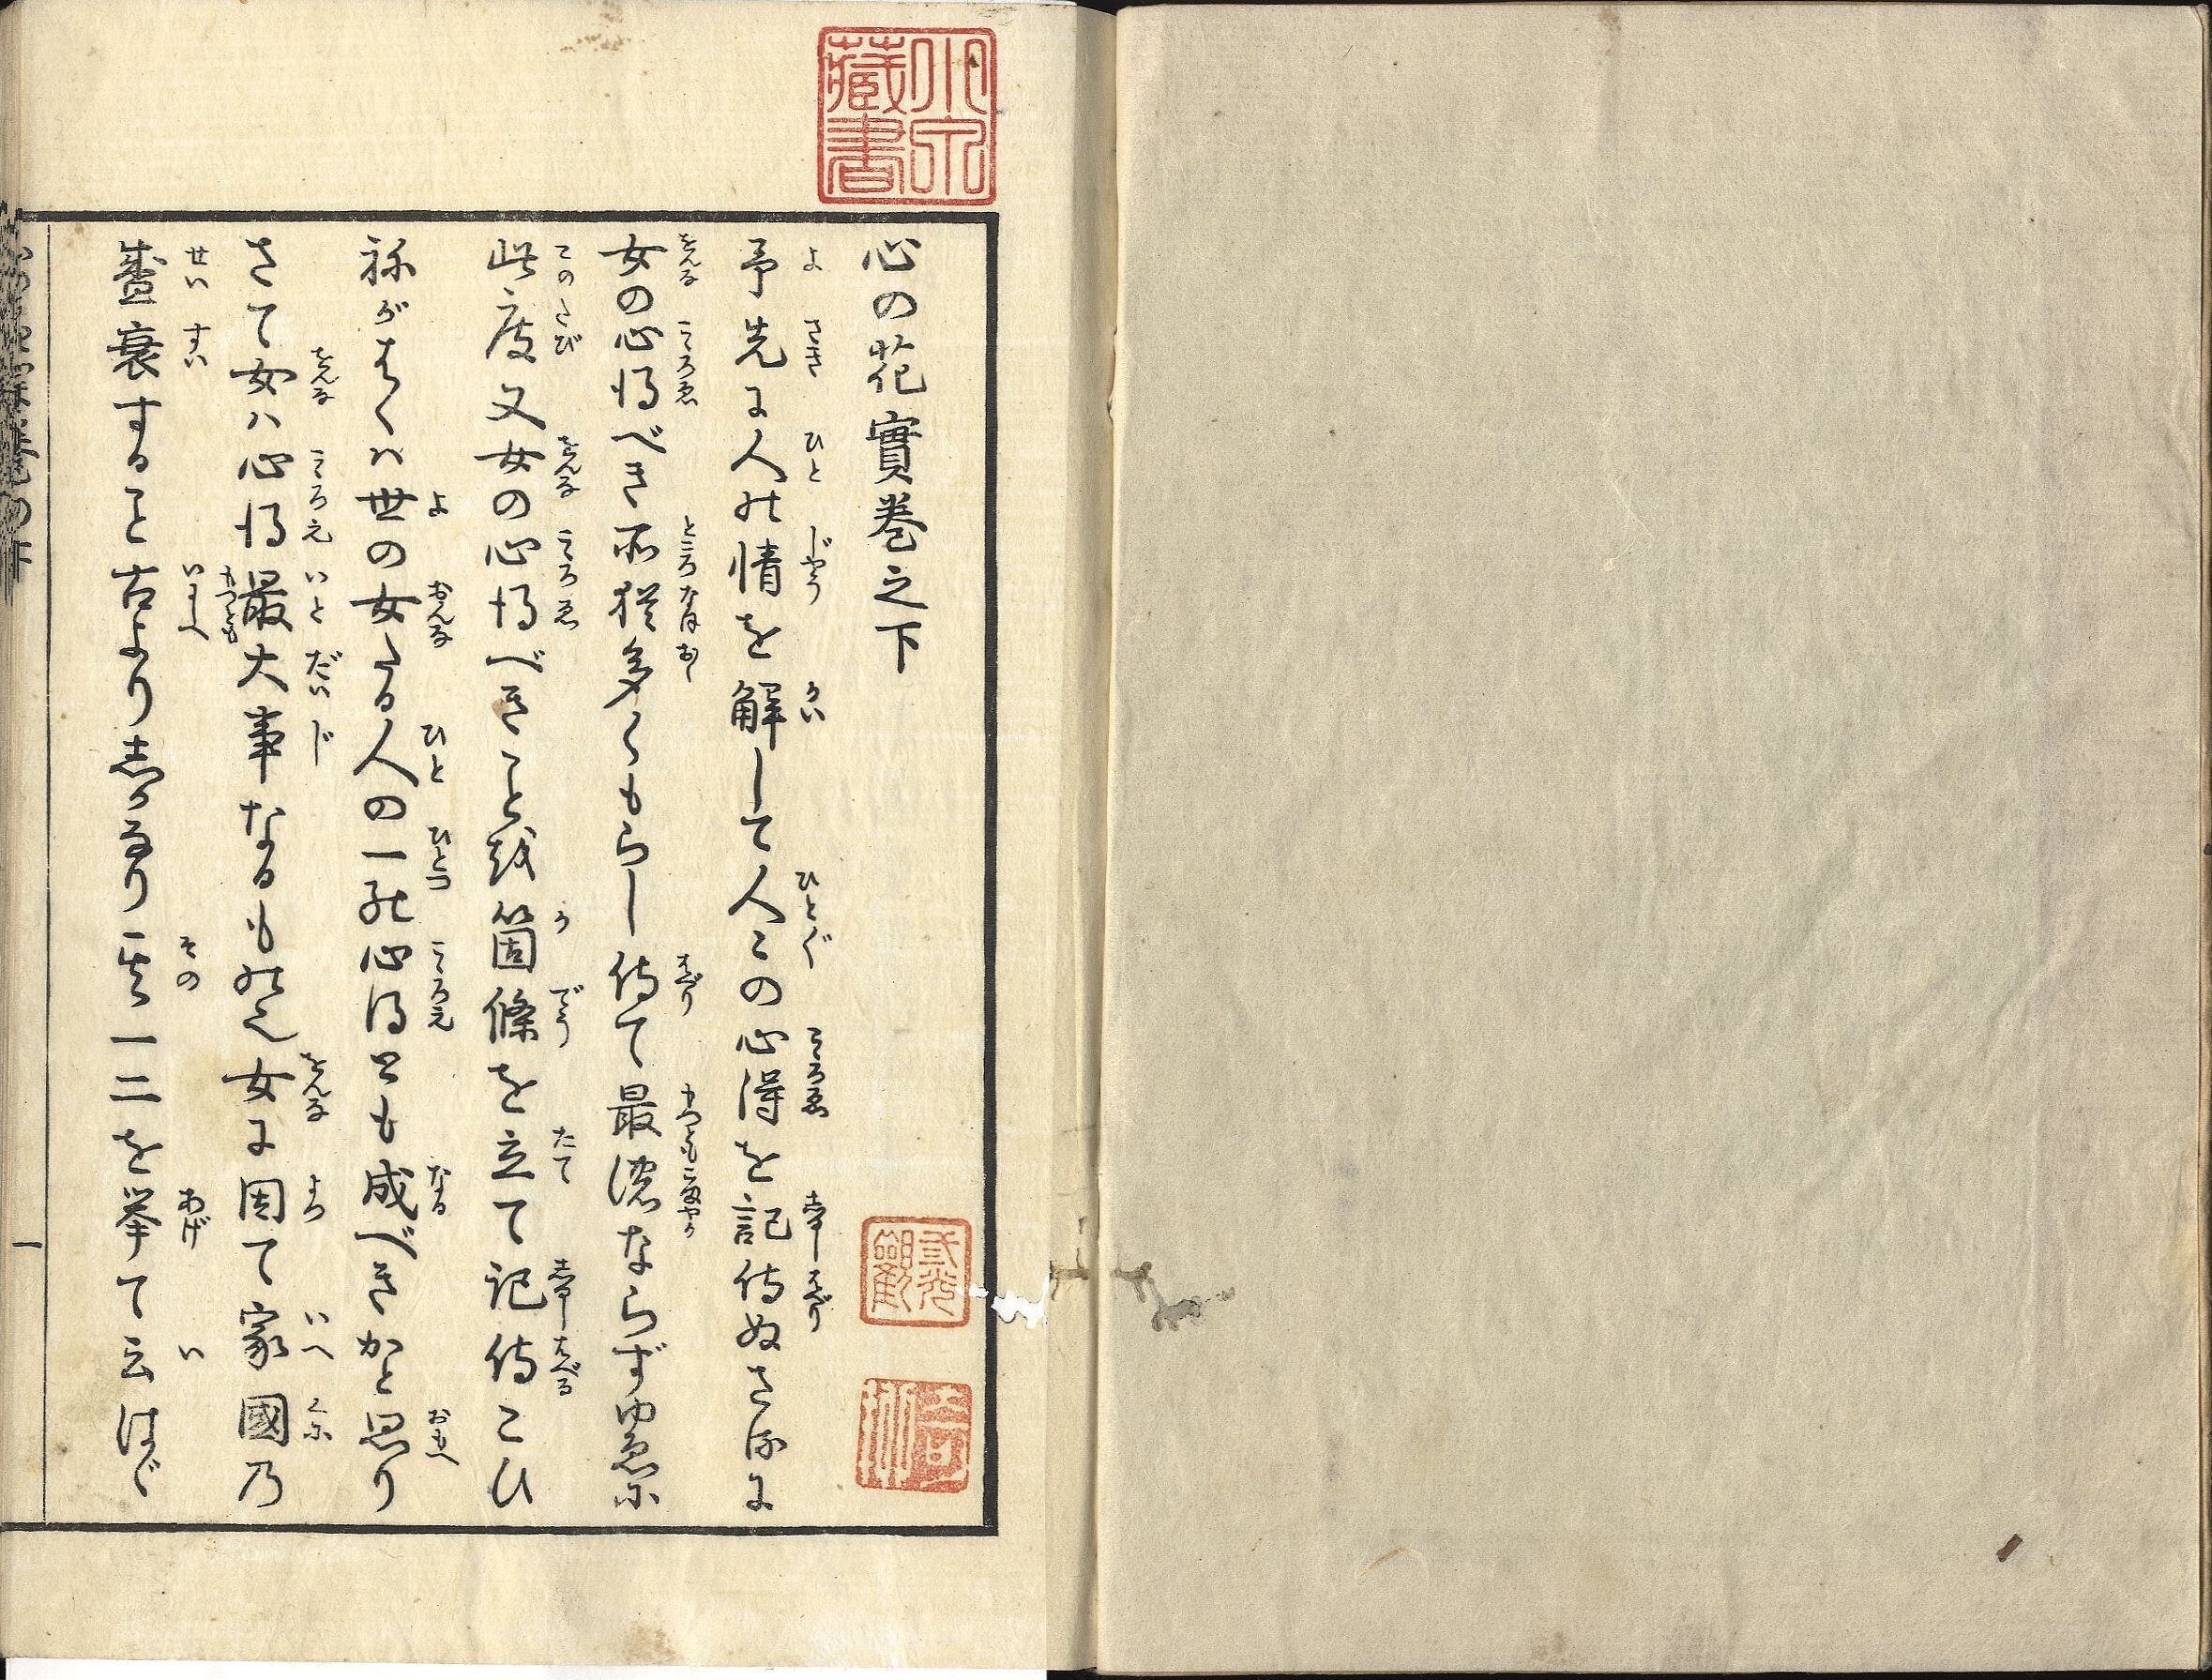 心の花實巻之下
予先に人の情を解して人〻の心得を記侍ぬさるに
女の心得べき所猶多くもらし侍て最濃ならずゆゑに
此度又女の心得べきこと数箇條を立て記侍こひ
ねがはくハ世の女たる人の一の心得とも成べきかと思り
さて女ハ心得最大事なるものにて女に因て家國乃
盛衰すること古よりしかなり其一二を挙て云はゞ
一
藏書